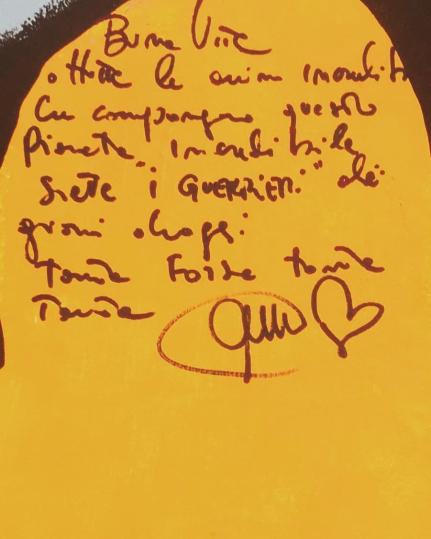 Buona Vita
a tutte le anime incredibi
che compongono questo
Pianeta incredibile
Siete "i GUERRIERI" dei
giorni d'oggi
Tanta Forza tanta
Tanta